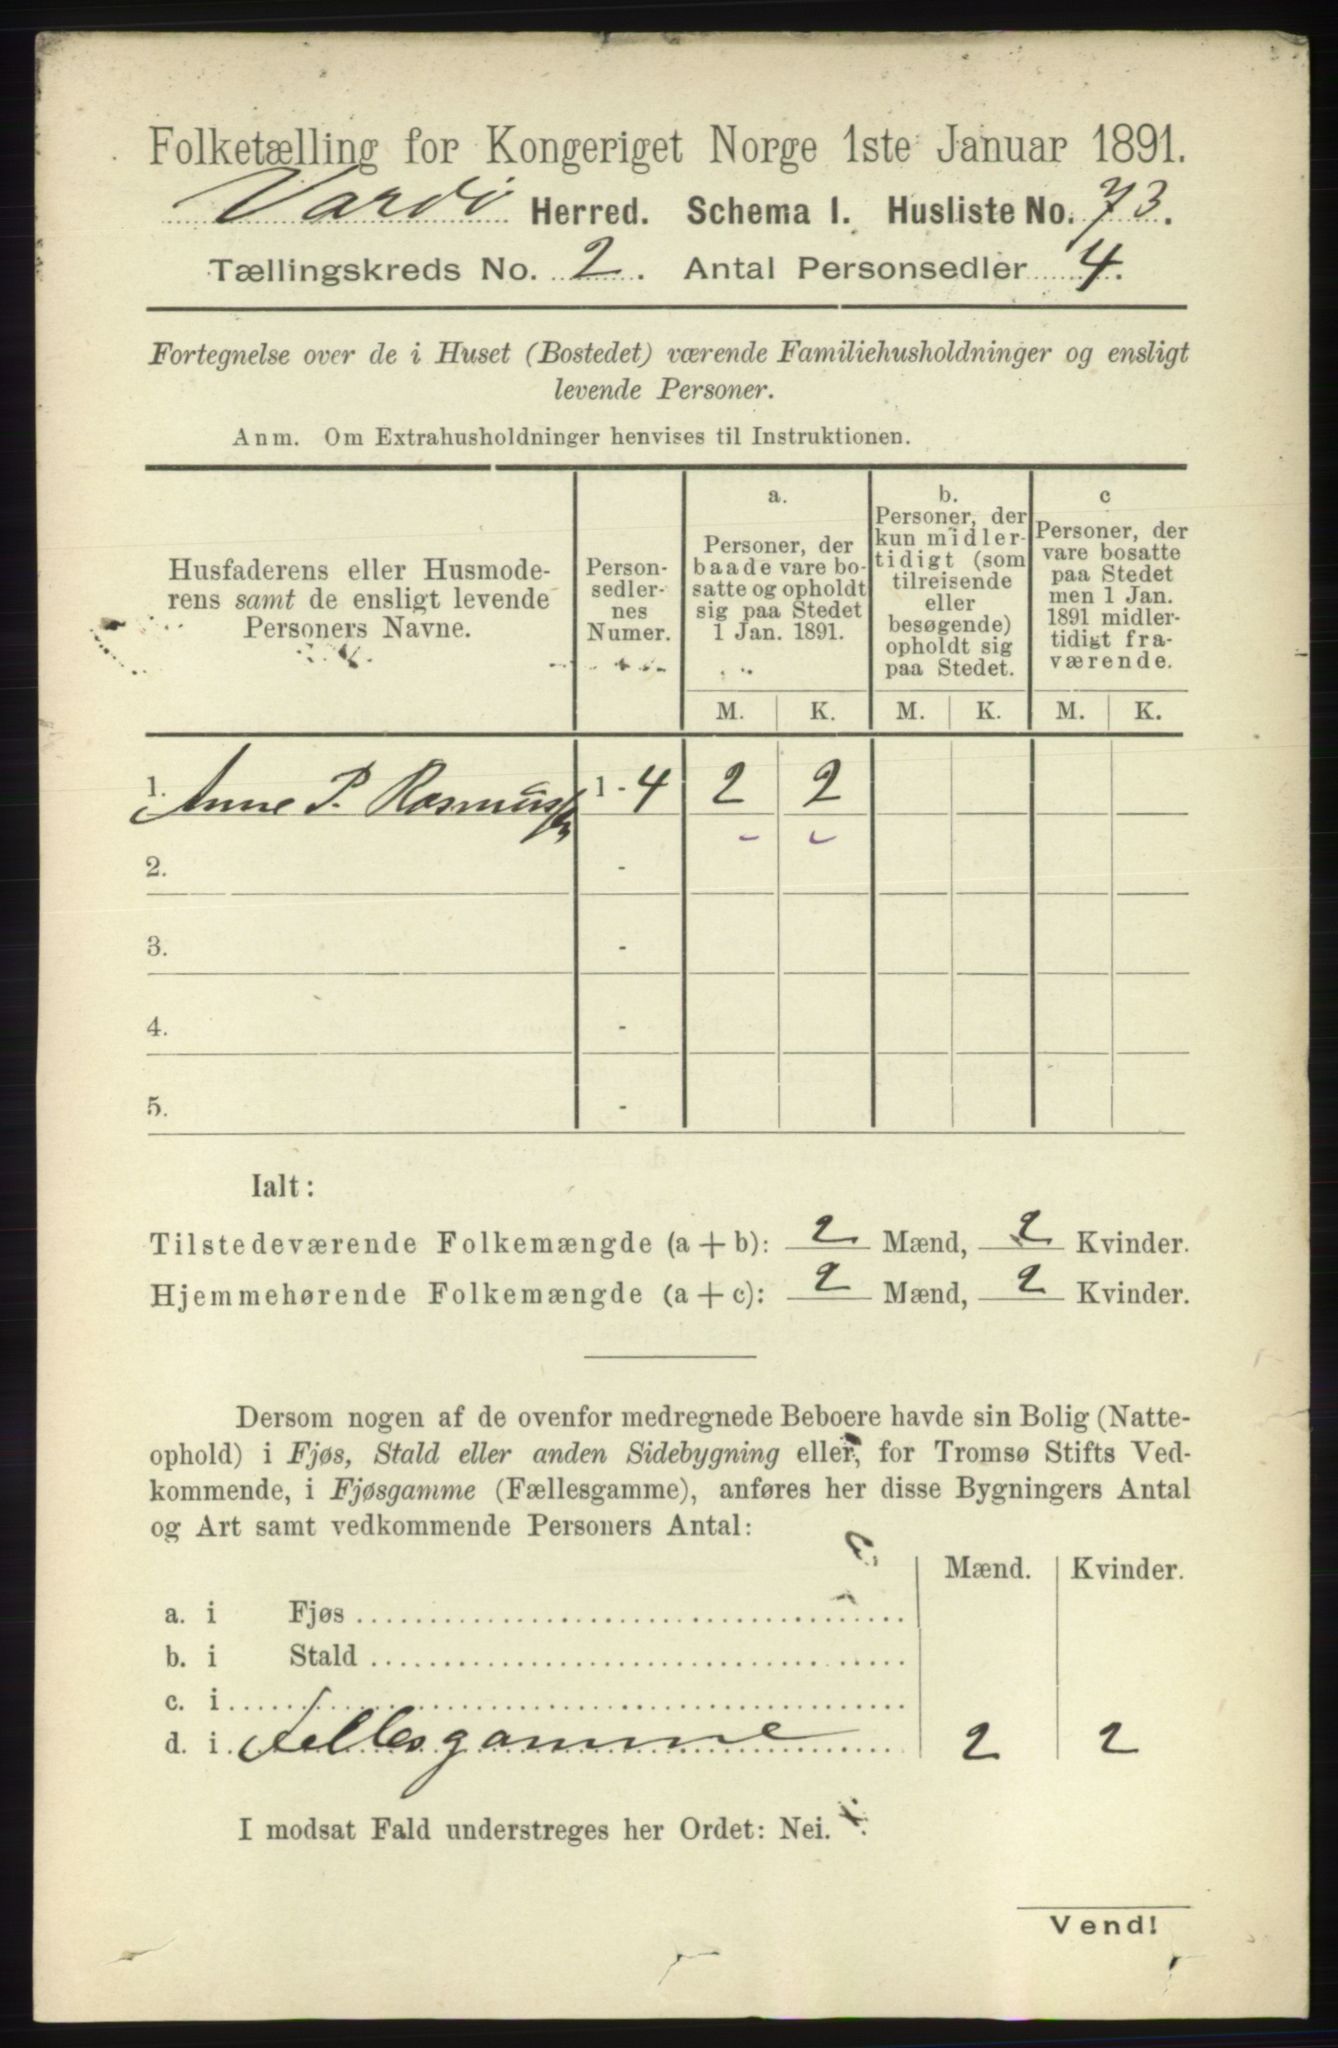 Folketælling for Kongeriget Norge 1ste Januar 1891.
Vardö Herred. Schema 1. Husliste No. 73.
Tællingskreds No. 2. Antal Personsedler 4.
Fortegnelse over de i Huset (Bostedet) værende Familiehusholdninger og ensligt
levende Personer.
Anm. Om Extrahusholdninger henvises til Instruktionen.
Husfaderens eller Husmode-
rens samt de ensligt levende
Personers Navne.
Person-
sedler-
nes
Numer.
a.
Personer, der
baade vare bo-
satte og opholdt
sig paa Stedet
1 Jan. 1891.
b.
Personer, der
kun midler-
tidigt (som
tilreisende
eller
besøgende)
opholdt sig
paa Stedet.
c
Personer, der
vare bosatte
paa Stedet
men 1 Jan.
1891 midler-
tidigt fra-
værende.
M. K. M. K. M. K.
1. Anne P. Rasmussen 1 - 4 2 2
2. -
3. -
4. -
5. -
Ialt:
Tilstedeværende Folkemængde (a + b): 2 Mænd, 2 Kvinder.
Hjemmehørende Folkemængde (a + c): 2 Mænd, 2 Kvinder.
Dersom nogen af de ovenfor medregnede Beboere havde sin Bolig (Natte-
ophold) i Fjøs, Stald eller anden Sidebygning eller, for Tromsø Stifts Ved-
kommende, i Fjøsgamme (Fællesgamme), anføres her disse Bygningers Antal
og Art samt vedkommende Personers Antal:
Mænd. Kvinder.
a. i Fjøs
b. i Stald
c. i
d. i Fellesgamme 2 2
I modsat Fald understreges her Ordet: Nei.
Vend!